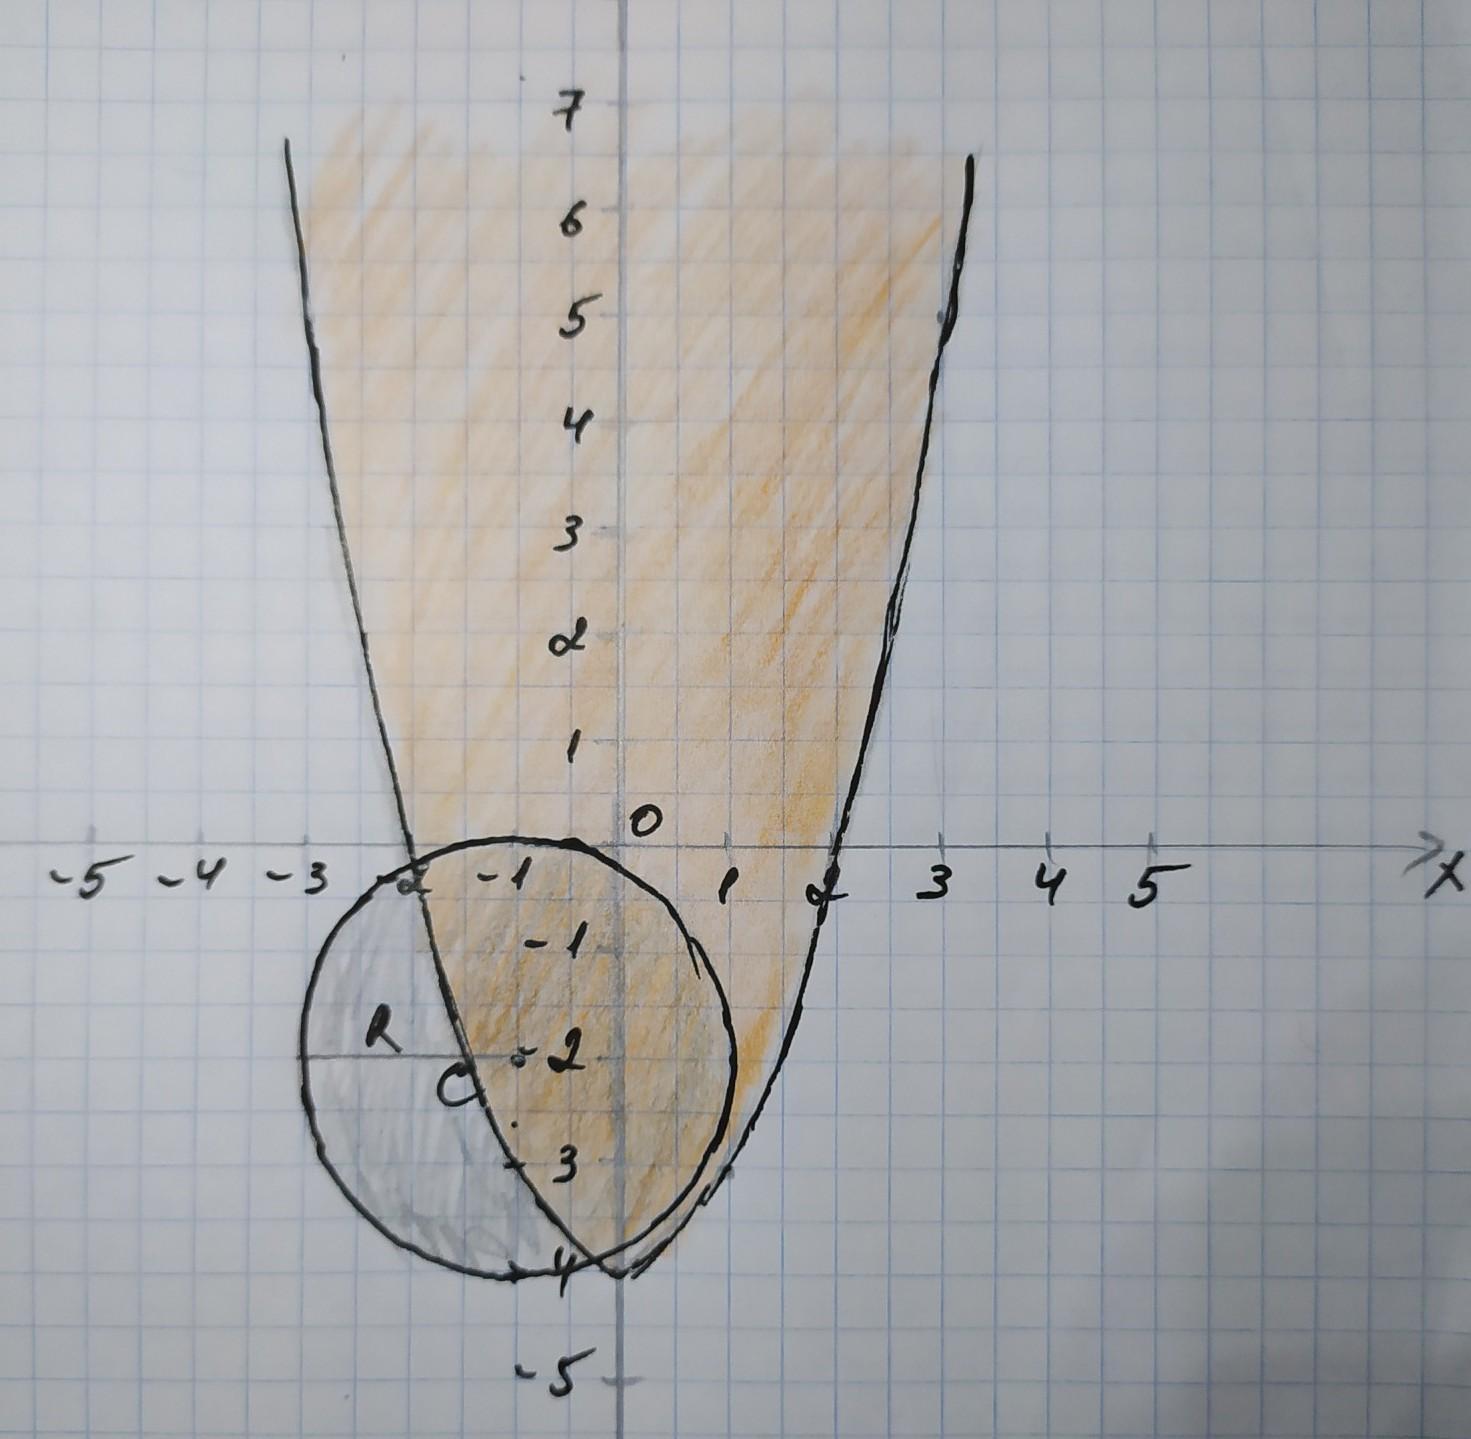 7
6
5
4
3
2
1
0
-5 -4 -3 -2 -1 1 2 3 4 5 X
-1
R
-2
C
-3
4
-5